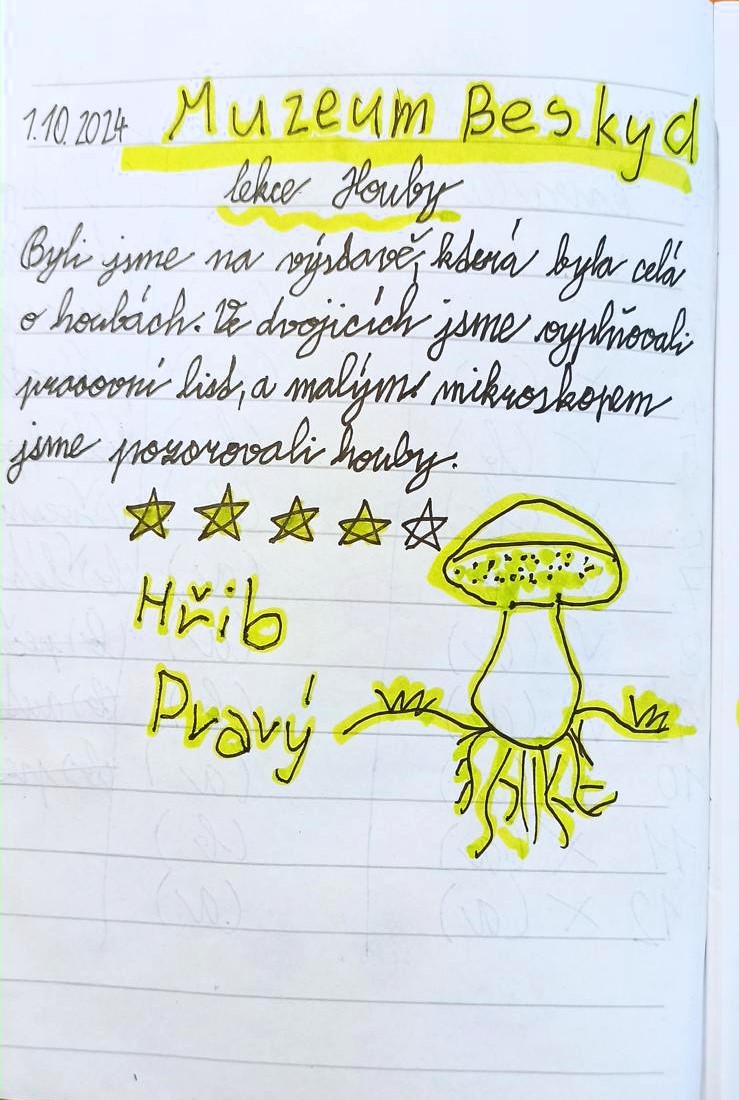 1.10.2024 Muzeum Beskyd
lekce Houby
Byli jsme na výstavě, která byla celá
o houbách. Ve dvojicích jsme vyplňovali
pracovní list, a malým mikroskopem
jsme pozorovali houby.
Hřib
Pravý